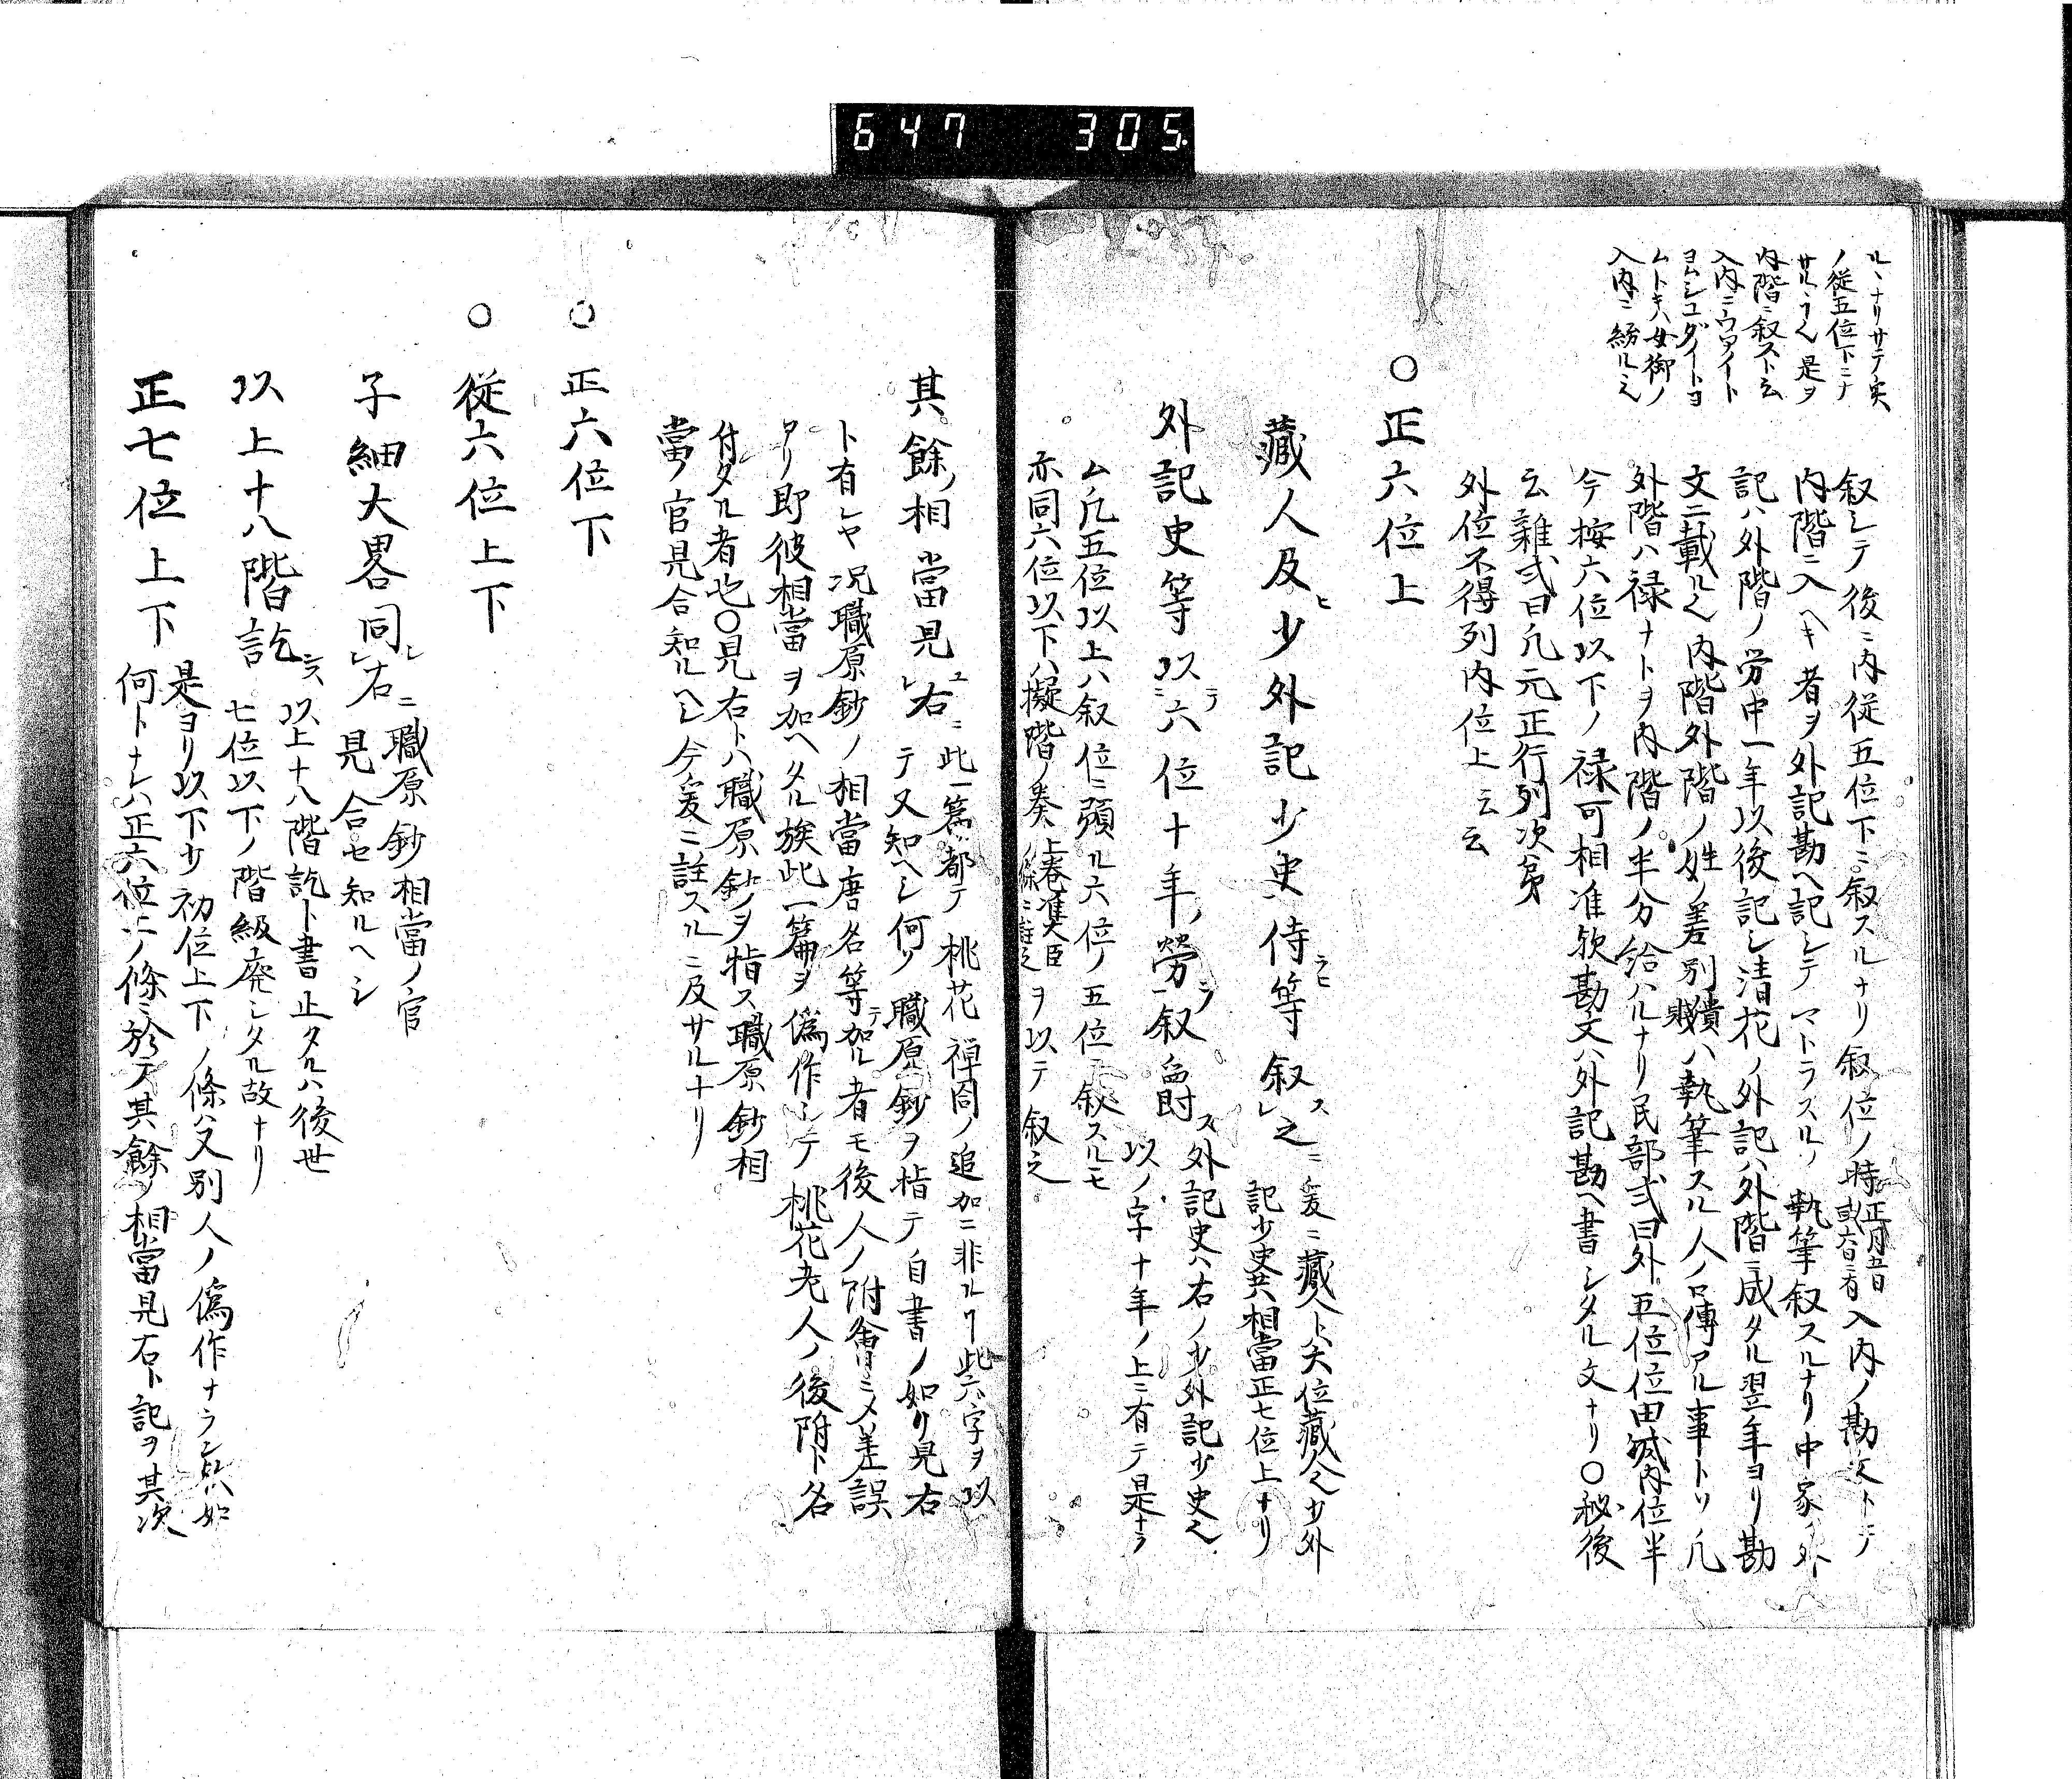 647 305
ルヽナリサテ実
ノ従五位下ニナ
サルヽ也 是ヲ
内階ニ叙スト云
入内ニウダイト
ヨムシユダイトヨ
ムトキハ女御ノ
入内ニ紛ルヽ也
叙シテ後ニ内従五位下ニ叙スルナリ叙位ノ時正月五日或六日ニ有入内ノ勘文トテ
内階ニ入ヘキ者ヲ外記勘ヘ記シテマトラスルヲ執筆叙スルナリ中家ノ外
記ハ外階ノ労中一年以後記シ清花ノ外記ハ外階ニ成タル翌年ヨリ勘
文ニ載ル也内階外階ノ姓ノ差別ハ執筆スル人ノ口傳アル事トソ凡
外階ハ禄ナトヲ内階ノ半分給ハルナリ民部式曰外五位位田減内位半
今按六位以下ノ禄可相准欤勘文ハ外記勘ヘ書シタル文ナリ〇秘後
云雑式曰凡元正行列次第
外位不得列内位上云云
〇正六位上
藏人及ヒ少外記少史侍等叙ス之ニ爰ニ藏人トハ六位藏人也少外
記少史共相當正七位上ナリ
外記史等以六位十年ノ勞叙爵ス外記史ハ右ノ少外記少史也
以ノ字十年ノ上ニ有テ是ナラ
ム凡五位以上ハ叙位ニ預ル六位ノ五位ニ叙スルモ
亦同六位以下ハ擬階ノ奏上巻准大臣ノ條ニ註之ヲ以テ叙之
其餘ノ相當見ユ右ニ此一篇都テ桃花禅閤ノ追加ニ非ルヿ此六字ヲ以
テ又知ヘシ何ソ職原鈔ヲ指テ自書ノ如リ見右
ト有シヤ況職原鈔ノ相當唐名等加ル者モ後人ノ附會ニメ差誤
アリ即彼相當ヲ加ヘタル族此一篇ヲ偽作シテ桃花老人ノ後附ト名
付タル者也〇見右トハ職原鈔ヲ指ス職原鈔相
當ノ官見合知ルヘシ今爰ニ註スルニ及サルナリ
〇正六位下
〇従六位上下
子細大畧同レ右ニ職原鈔相當ノ官
見合セ知ルヘシ
以上十八階訖ヌ以上十八階訖ト書止タルハ後世
七位以下ノ階級廃シタル故ナリ
正七位上下是ヨリ以下少初位上下ノ條ハ又別人ノ偽作ナラン欤如
何トナレハ正六位上ノ條ニ於テ其餘ノ相當見右ト記ヲ其次